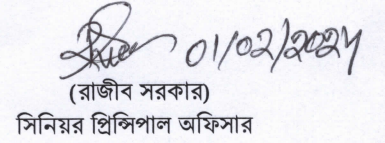 01/02/2024
(রাজীব সরকার)
সিনিয়র প্রিন্সিপাল অফিসার